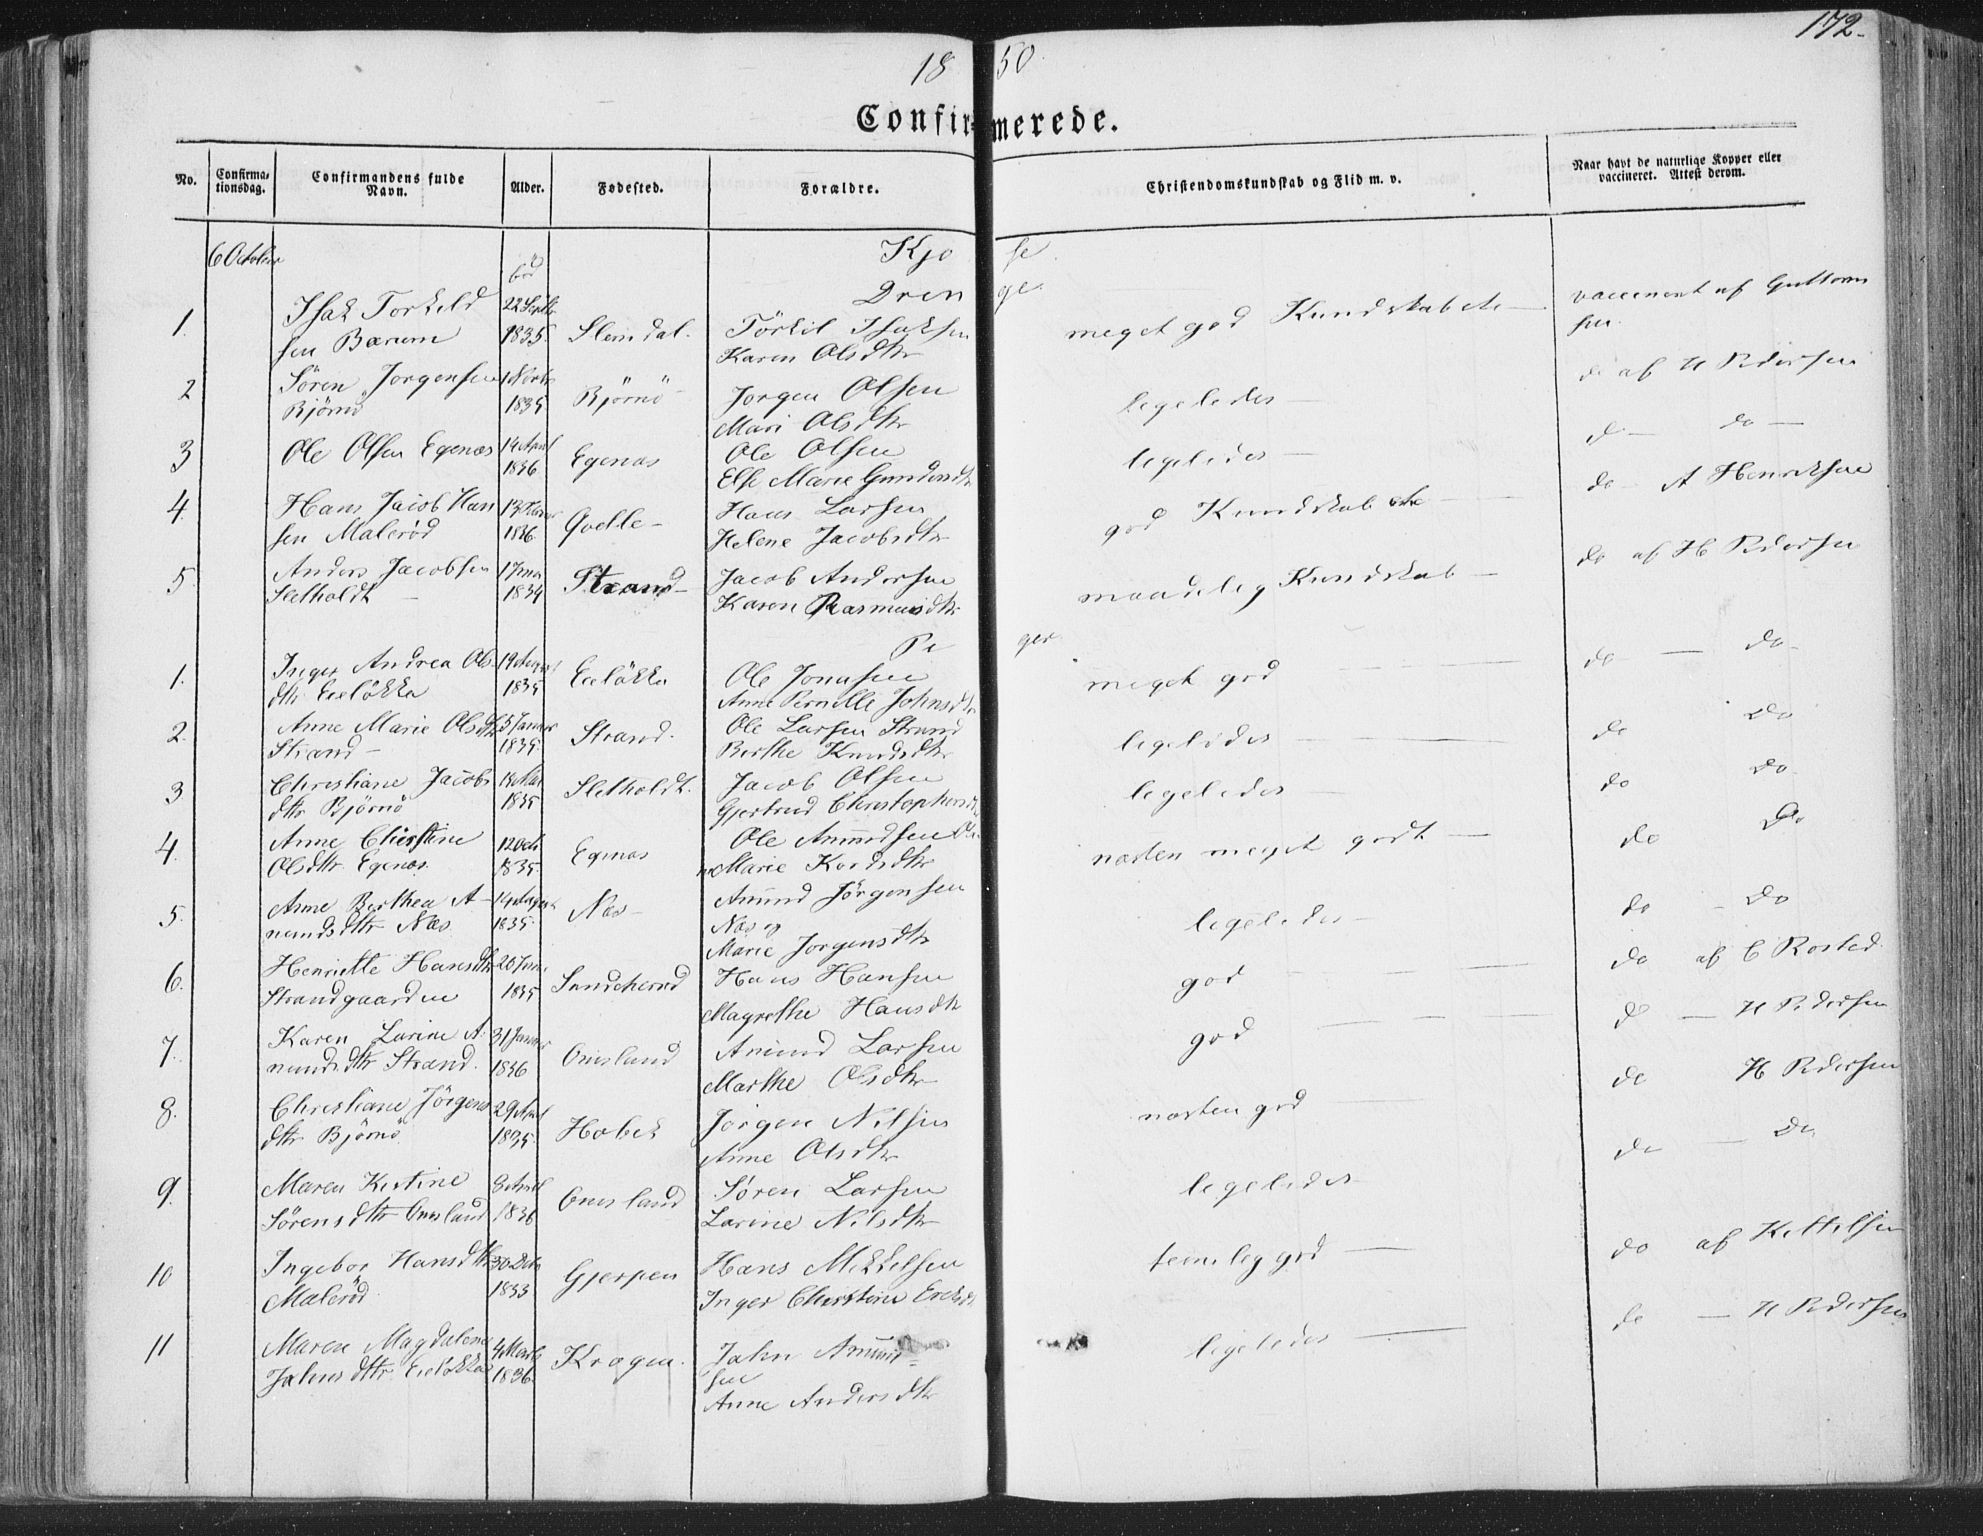 172.
18 50.
Confirmerede.
No. Confirmationsdag. Confirmandens fulde Navn. Alder. Fødested. Forældre. Christendomskundskab og Flid m. v. Naar havt de naturlige Kopper eller vaccineret. Attest derom.
6 October Kjose
Drenge.
1. Isak Torkildsen Bærum 22 Septbr 1835. Slemdal. Törkil Isaksen Karen Olsdtr meget god Kundskab vaccineret af Guttormsen.
2 Sören Jorgensen Bjørnö 1835 Bjørnö Jorgen Olsen Mari Olsdtr ligeledes do af H Pedersen
3 Ole Olsen Egenæs 14 April 1836 Egenæs Ole Olsen Else Marie ligeledes do do
4. Hans Jacob Hansen Malerød 13 1836 Qvelle Hans Larsen Helene Jacobsdtr god Kundskab do A Henriksen
5. Anders Jacobsen Sletholdt 1834 Strand Jacob Andersen Karen Rasmusdtr maadelig Kundskab do af H Pedersen
Piger.
1. Inger Andrea Olsdtr Eeløkka 19 August 1835 Eeløkka Ole Jonasen Anne Pernille Johnsdtr meget god do do
2. Anne Marie Olsdtr Strand 5 Januar 1835 Strand. Ole Larsen Strand Berthe Knudsdtr ligeledes do do
3 Christiane Jacobsdtr Bjørnö 1835 Sletholdt. Jacob Olsen Gjertrud Christophersdtr ligeledes do do
4. Anne Christine Olsdtr. Egenæs. 12 Octb 1835. Egenæs Ole Amundsen Marie næsten meget godt do do
5. Anne Berthea Amundsdtr Næs 14 August 1835. Næs Amund Jörgensen Næs og Marie Jorgensdtr ligeledes do do
6. Henriette Hansdtr Strandgaarden 20 1835 Hans Hansen Magrethe Hansdtr god do af C Rosted.
7. Karen Larine Amundsdtr Strand. 31 Januar 1836 Omsland Amund Larsen Marthe Olsdtr god do H Pedersen
8. Christiane Jörgensdtr Bjørnö. 29 April 1835. Holbek Jörgen Nilsen Anne Olsdtr næsten god do H Pedersen
9. Maren Kirstine Sörensdtr Omsland 8 April 1836 Omsland Søren Larsen Larine Nilsdtr ligeledes do do
10 Ingebor Hansdtr Malerød. 30 Decb 1833 Gjerpen Hans Mikkelsen Inger Christine temelig god do af Kittilsen
11 Maren Magdalene Johnsdtr Eeløkka 4 Marts 1836. Kragen. John Amundsen Anne Andersdtr ligeledes do H Pedersen